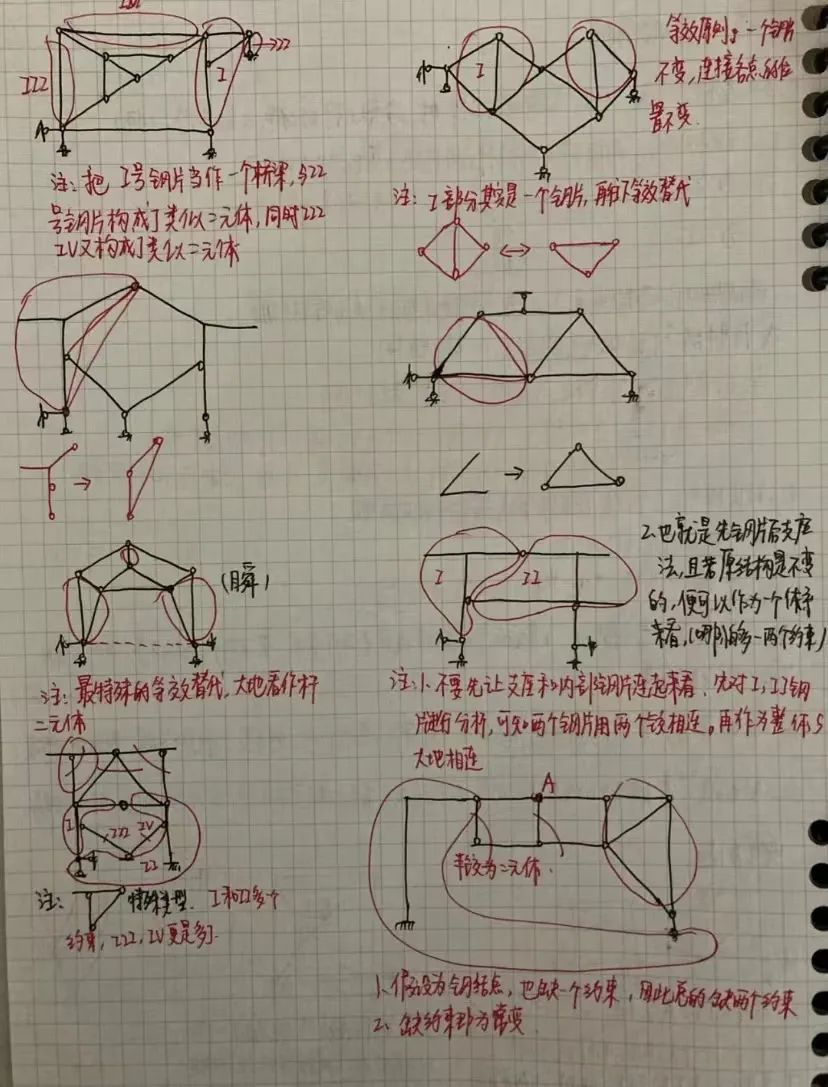 III
I
II
注:把 I号钢片当作一个桥梁,与II
号钢片构成了类似二元体,同时III
IV又构成了类似二元体
I
等效原则:一个钢片
不变,连接各点的位
置不变.
注: I部分其实是一个钢片,再往下等效替代
(瞬)
注:最特殊的等效替代,大地看作杆
二元体
I
II
2.也就是先钢片后支座
法,且若原结构是不变
的,便可以作为一个体系
来看,(哪怕的多一两个约束)
注:1.不要先让支座和内部钢片连起来看.先对I,II钢
片进行分析,可知两个钢片用两个铰相连。再作为整体与
大地相连
I
III
IV
II
注:
特殊类型. I和II多个
约束,III,IV更是多了.
A
半铰为二元体.
1、假设为钢结点,也缺一个约束,因此总的缺两个约束
2、缺约束即为常变.